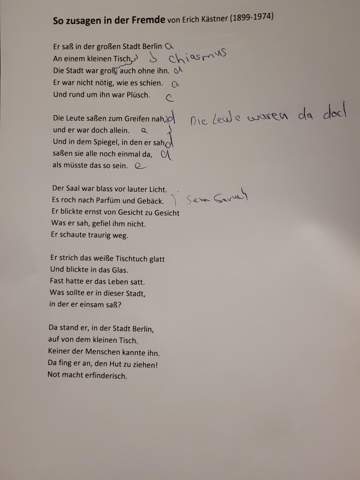 So zusagen in der Fremde von Erich Kästner (1899-1974)
Er saß in der großen Stadt Berlin a
An einem kleinen Tisch. b Chiasmus
Die Stadt war groß, auch ohne ihn. a
Er war nicht nötig, wie es schien. a
Und rund um ihn war Plüsch. c
Die Leute saßen zum Greifen nah, d Die Leute waren da doch
und er war doch allein. e
Und in dem Spiegel, in den er sah, d
saßen sie alle noch einmal da, d
als müsste das so sein. e
Der Saal war blass vor lauter Licht.
Es roch nach Parfüm und Gebäck.
Er blickte ernst von Gesicht zu Gesicht
Was er sah, gefiel ihm nicht.
Er schaute traurig weg.
Er strich das weiße Tischtuch glatt
Und blickte in das Glas.
Fast hatte er das Leben satt.
Was sollte er in dieser Stadt,
in der er einsam saß?
Da stand er, in der Stadt Berlin,
auf von dem kleinen Tisch.
Keiner der Menschen kannte ihn.
Da fing er an, den Hut zu ziehen!
Not macht erfinderisch.